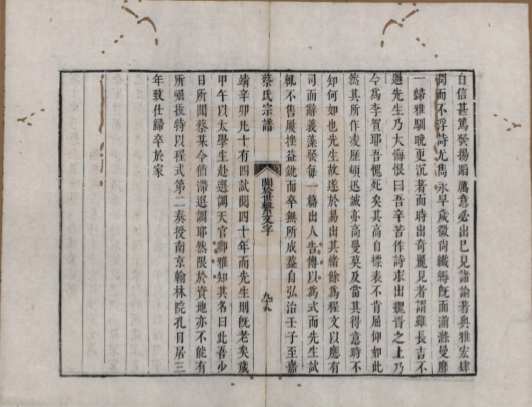 自信甚篤發揚蹈厲意必出已見諸論著典雅宏肆
潤而不浮詩尤雋永早歲微尚纖縟既而湔滌曼靡
一歸雅馴晚更沉著而時出奇麗見者謂雖長吉不
過先生乃大悔恨曰吾辛苦作詩求出魏晉之上乃
今為李賀耶吾愧死矣其高自標表不肯屈仰如此
然其所作凌歷頓迅誠亦高曼莫及當其得意時不
知何如也先生故邃於易出其緒餘為程文以應有
司而辭義藻發每一篇出人吿傳以為式而先生試
輒不售屢挫益銳而卒無所成蓋自弘治壬子至嘉
蔡氏宗譜
閱世繫文字
靖辛卯凡十有四試閱四十年而先生則既老矣歲
甲午以太學生赴選調天官卿雅知其名曰此吾少
日所聞蔡某今猶滯選調耶然限於資地亦不能有
所振拔特以程式第二奏授南京翰林院孔目居三
年致仕歸卒於家